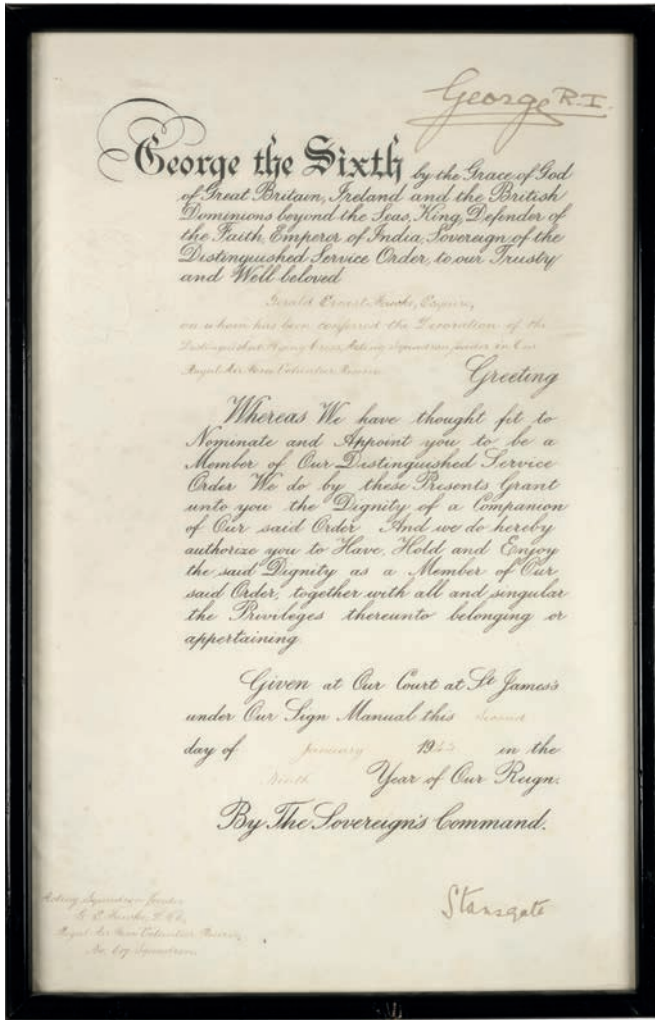 George R.I.
George the Sixth by the Grace of God
of Great Britain, Ireland and the British
Dominions beyond the Seas, King, Defender of
the Faith, Emperor of India, Sovereign of the
Distinguished Service Order, to our Trusty
and Well beloved
Gerald Ernest Esquire,
on whom has been conferred the Decoration of the
Distinguished Flying Cross, Acting Squadron Leader in Our
Royal Air Force Volunteer Reserve
Greeting
Whereas We have thought fit to
Nominate and Appoint you to be a
Member of Our Distinguished Service
Order We do by these Presents Grant
unto you the Dignity of a Companion
of Our said Order And we do hereby
authorize you to Have, Hold and Enjoy
the said Dignity as a Member of Our
said Order, together with all and singular
the Privileges thereunto belonging or
appertaining
Given at Our Court at St James's
under Our Sign Manual this Second
day of January 19 in the
Ninth Year of Our Reign.
By The Sovereign's Command.
Stansgate
Acting Squadron Leader
Royal Air Force Volunteer Reserve,
No. Squadron.